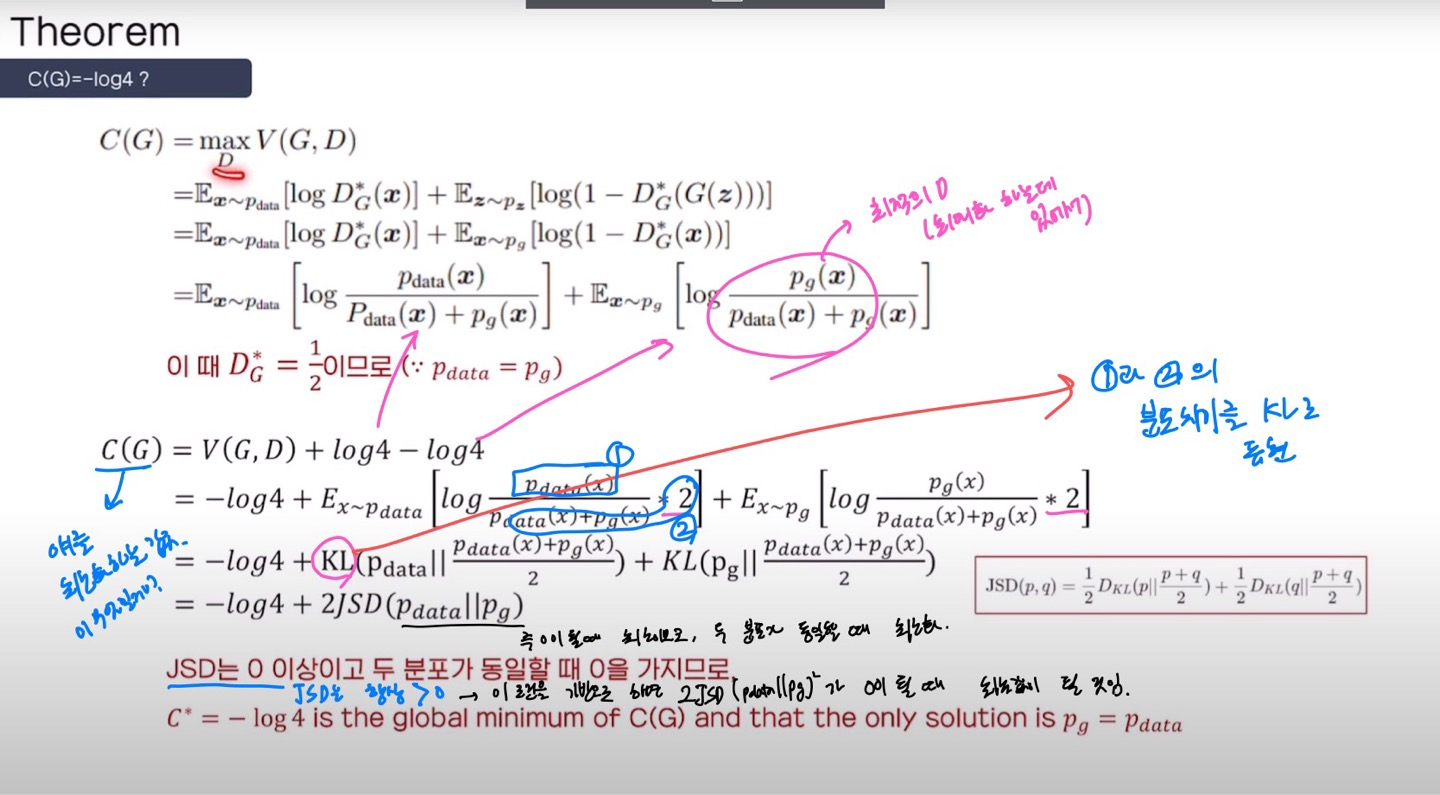 Theorem
C(G)=-log4 ?
C(G) = max_D V(G, D)
=𝔼_{x∼p_data}[log D*_G(x)] + 𝔼_{z∼p_z}[log(1 − D*_G(G(z)))]
=𝔼_{x∼p_data}[log D*_G(x)] + 𝔼_{x∼p_g}[log(1 − D*_G(x))]
=𝔼_{x∼p_data}[log p_data(x) / (P_data(x) + p_g(x))] + 𝔼_{x∼p_g}[log p_g(x) / (p_data(x) + p_g(x))]
최적의 D
이 때 D*_G = 1/2 이므로 (∵ p_data = p_g)
①과 ②의
분포차이를 KL로
표현
C(G) = V(G, D) + log4 − log4
①
= −log4 + E_{x~p_data}[log p_data(x) / (p_data(x)+p_g(x)) * 2] + E_{x~p_g}[log p_g(x) / (p_data(x)+p_g(x)) * 2]
②
= −log4 + KL(p_data|| (p_data(x)+p_g(x)) / 2) + KL(p_g|| (p_data(x)+p_g(x)) / 2)
JSD(p, q) = 1/2 D_KL(p|| (p + q) / 2) + 1/2 D_KL(q|| (p + q) / 2)
= −log4 + 2JSD(p_data||p_g)
두 분포가 동일할 때
JSD는 0 이상이고 두 분포가 동일할 때 0을 가지므로,
JSD는 항상 > 0 → 이 2JSD(pdata||pg) 가 0이 될 때 최솟값이 될 것임.
C* = − log 4 is the global minimum of C(G) and that the only solution is p_g = p_data